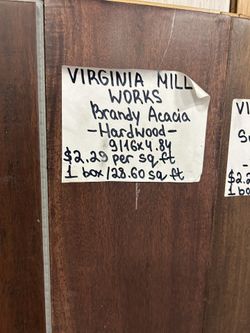 VIRGINIA MILL
WORKS
Brandy Acacia
-Hardwood-
9/16x4.84
$2.29 per sq ft
1 box/28.60 sq ft
VI
S
-
$2.2
1 bo